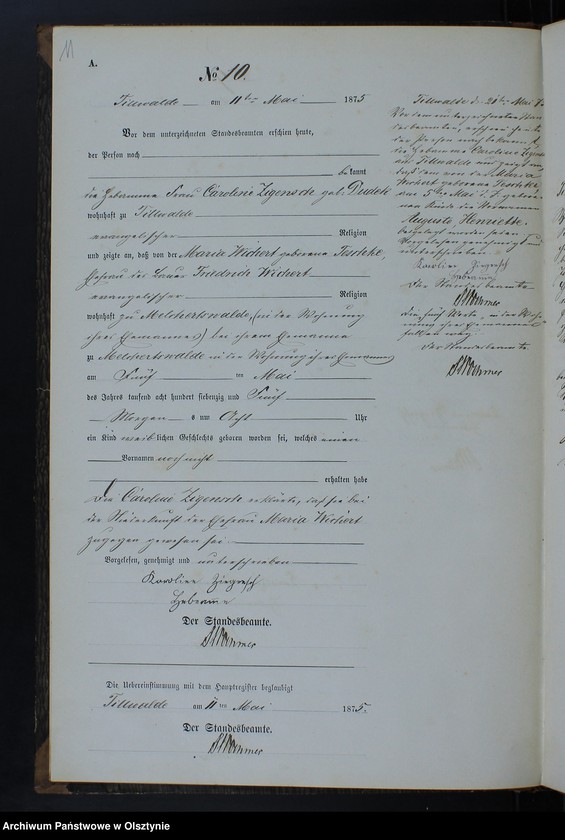 11
A.
№ 10.
Tillwalde am 11ten Mai 1875
Vor dem unterzeichneten Standesbeamten erschien heute,
der Person nach
bekannt
die Hebamme Frau Caroline geb. Dudek
wohnhaft zu Tillwalde
evangelischer Religion
und zeigte an, daß von der Maria Wichert geborene Teschke,
Ehefrau des Bauer Friedrich Wichert
evangelischer Religion
wohnhaft zu Melchertswalde, (in der Wohnung
ihres Ehemannes) bei ihrem Ehemanne
zu Melchertswalde in der Wohnung ihres Ehemannes
am Fünf ten Mai
des Jahres tausend acht hundert siebenzig und Fünf
Morgens um Acht Uhr
ein Kind weiblichen Geschlechts geboren worden sei, welches einen
Vornamen noch nicht
erhalten habe
Die Caroline erklärte, daß sie bei
der Niederkunft der Ehefrau Maria Wichert
zugegen gewesen sei
Vorgelesen, genehmigt und unterschrieben
Karoline
Hebamme
Der Standesbeamte.
Die Uebereinstimmung mit dem Hauptregister beglaubigt
Tillwalde am 11ten Mai 1875.
Der Standesbeamte.
Tillwalde d. 21ten Mai
Vor dem unterzeichneten
erschien heute
der Person nach bekannt,
die Hebamme Caroline
aus Tillwalde und zeigte an,
daß dem von der Maria
Wichert geborene Teschke,
am 5ten Mai geborenen
Kinde die Vornamen
Auguste Henriette
beigelegt worden seien.
Vorgelesen genehmigt und
unterschrieben
Karoline
Hebamme
Der Standesbeamte
die fünf Worte, in der Wohnung
ihres Ehemannes
fallen weg.
Der Standesbeamte.
Archiwum Państwowe w Olsztynie